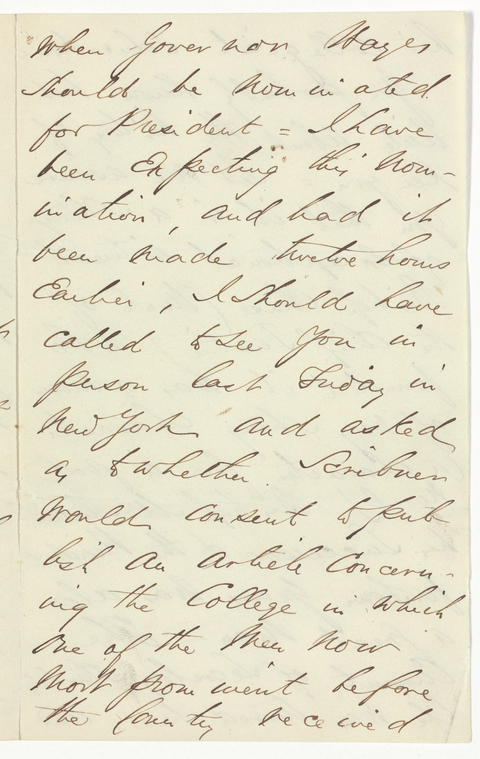 when Governor Hayes
should be nominated
for President = I have
been Expecting this nom-
ination, and had it
been made twelve hours
Earlier, I should have
called to see you in
person last Friday in
New York and asked
as to whether Scribners
would consent to pub
lish an article concern-
ing the College in which
one of the men now
most prominent before
the Country received